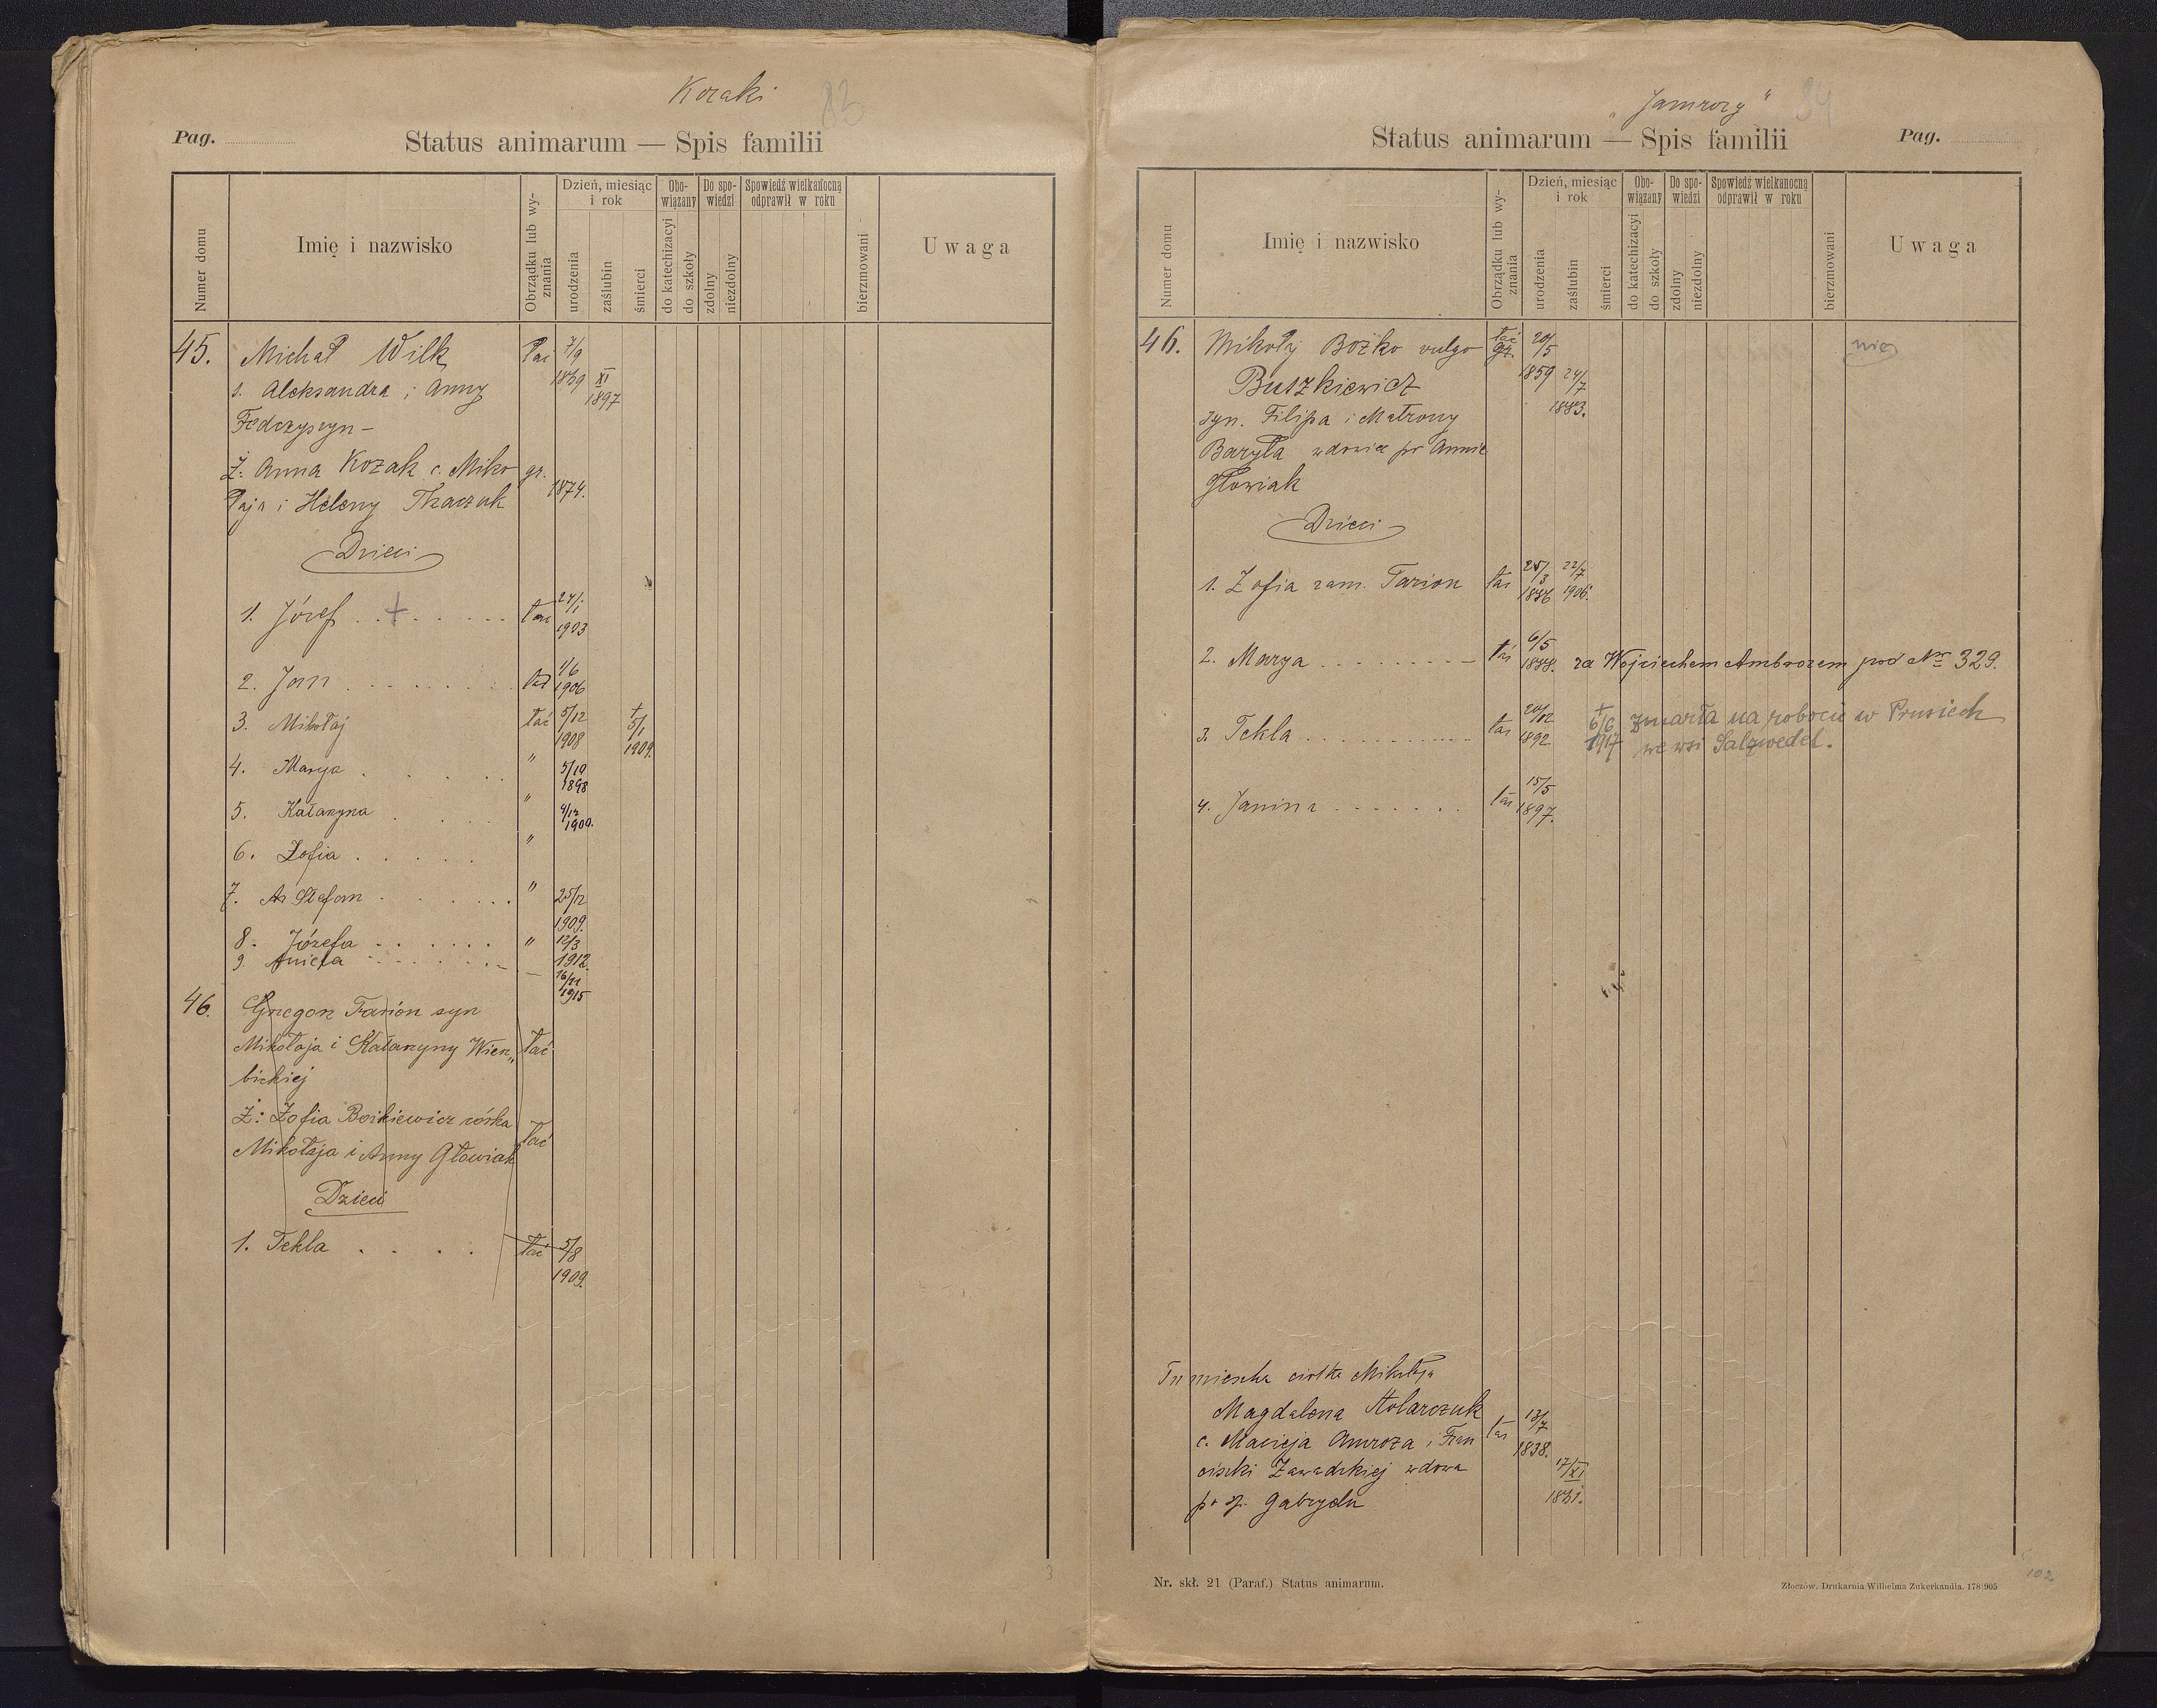 Kozaki 83
Pag.
Status animarum — Spis familii
Numer domu
Imię i nazwisko
Obrządku lub wyznania
Dzień, miesiąc i rok
urodzenia
zaślubin
śmierci
Obowiązany
do katechizacyi
do szkoły
Do spowiedzi
zdolny
niezdolny
Spowiedź wielkanocną odprawił w roku
bierzmowani
Uwaga
45. Michał Wilk łac 7/9 1859 XI 1897
s. Aleksandra i Anny
Fedczyszyn –
Ż: Anna Kozak c. Miko gr. 1874.
łaja i Heleny Tkaczuk
Dzieci
1. Józef + łac 24/1 1903
2. Jan łac 1/6 1906
3. Mikołaj łać 5/12 1908 + 5/1 1909.
4. Marya " 5/10 1898
5. Katarzyna " 4/12 1900.
6. Zofia "
7. Stefan " 25/12 1909.
8. Józefa " 12/3 1912.
9. Aniela — 16/11 1915
46. Grzegorz Farion syn
Mikołaja i Katarzyny Wierz„ łać
bickiej
Ż: Zofia Bozkiewicz córka
Mikołaja i Anny Głowiak łać
Dzieci
1. Tekla łać 5/8 1909.
3
„Jamrozy" 84
Status animarum — Spis familii
Pag.
Numer domu
Imię i nazwisko
Obrządku lub wyznania
Dzień, miesiąc i rok
urodzenia
zaślubin
śmierci
Obowiązany
do katechizacyi
do szkoły
Do spowiedzi
zdolny
niezdolny
Spowiedź wielkanocną odprawił w roku
bierzmowani
Uwaga
46. Mikołaj Bożko vulgo łać gr. 20/5 1859 24/7 1883.
Buszkiewicz
syn. Filipa i Matrony
Baryła wdowiec po Annie
Głowiak
Dzieci
1. Zofia zam. Farion łac 25/3 1886 22/7 1906.
2. Marya łac 6/5 1888. za Wojciechem Ambrozem pod No 329.
3. Tekla łac 20/12 1892. + 6/6 1917 Zmarła na robocie w Prusiech
we wsi Salzwedel.
4. Janina łac 15/5 1897.
Tu mieszka ciotka Mikołaja
Magdalena Stolarczuk łac 13/7 1838.
c. Macieja Amroza i Fran
ciszki Zawadzkiej wdowa 17/XI
po ś.p. Gabryelu
Nr. skł. 21 (Paraf.) Status animarum.
Złoczów. Drukarnia Wilhelma Zukerkandla. 178|905
102